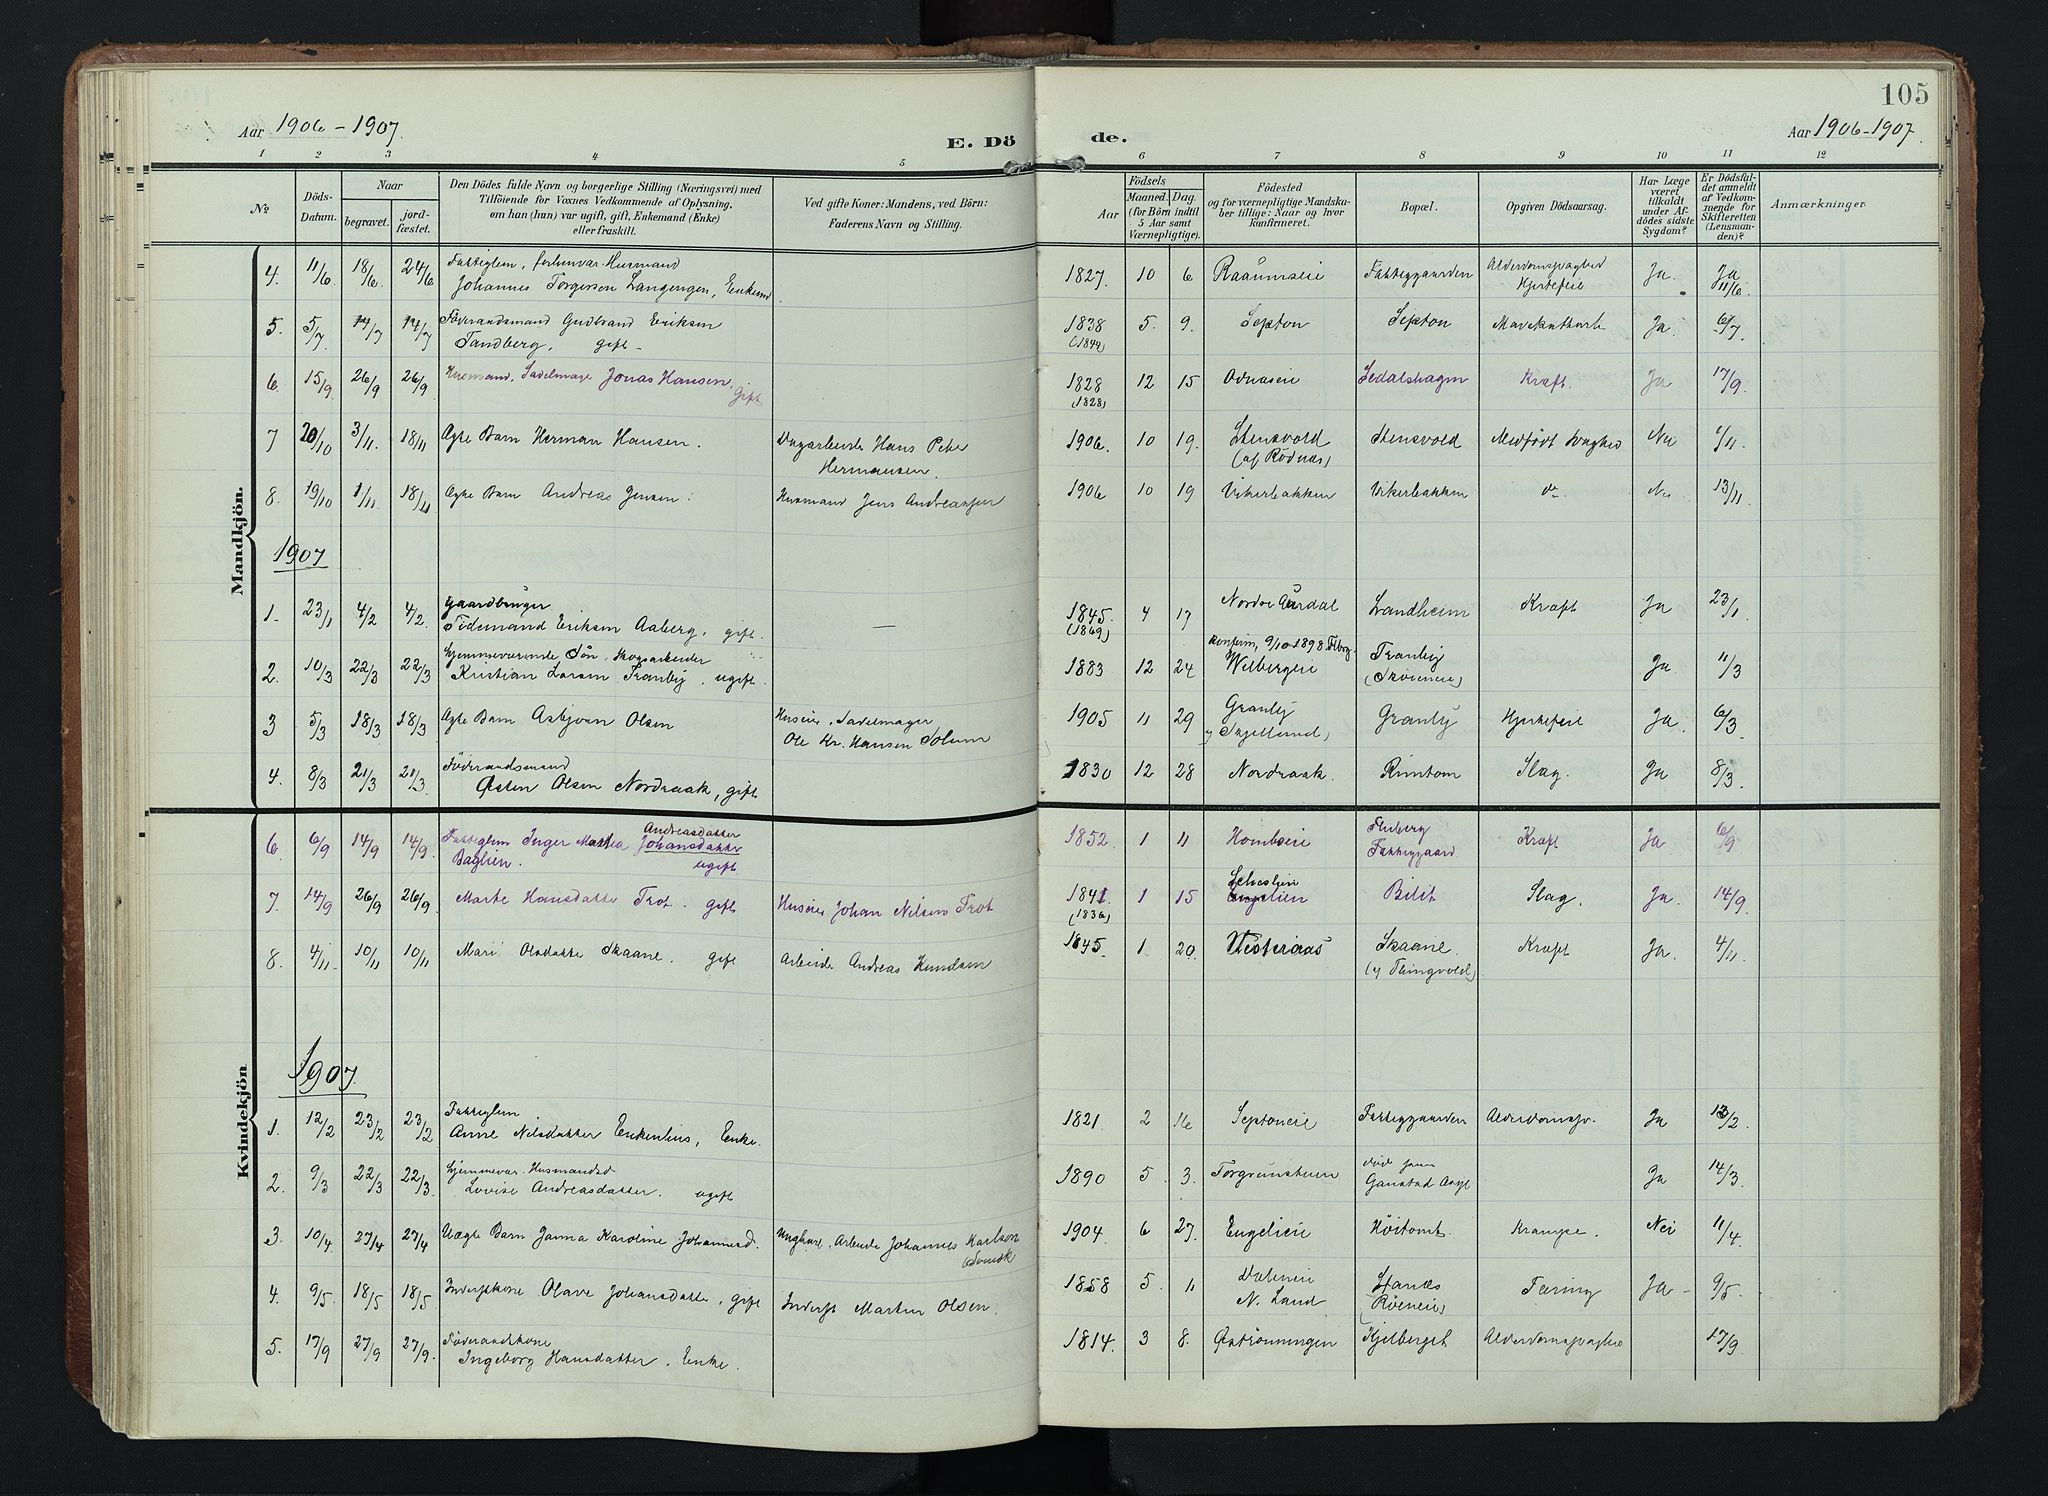 105
Aar 1906-1907.
E. Dö
de.
Aar 1906-1907.
1 2 3 4 5 6 7 8 9 10 11 12
No
Döds-Datum.
Naar
begravet.
jord-fæstet.
Den Dödes fulde Navn og borgerlige Stilling (Næringsvei) med
Tilföiende for Voxnes Vedkommende af Oplysning,
om han (hun) var ugift, gift, Enkemand (Enke)
eller fraskilt.
Ved gifte Koner: Mandens, ved Börn:
Faderens Navn og Stilling.
Födsels
Aar
Maaned. Dag.
(for Börn indtil
5 Aar samt
Værnepligtige).
Födested
og for værnepligtige Mandska-
ber tillige: Naar og hvor
konfirmeret.
Bopæl.
Opgiven Dödsaarsag.
Har Læge
været
tilkaldt
under Af-
dödes sidste
Sygdom?
Er Dödsfal-
det anmeldt
af Vedkom-
mende for
Skifteretten
(Lensman-
den)?
Anmærkninger.
Mandkjön.
4. 11/6 18/6 24/6 Fattiglem, forhenvar. Husmand
Johannes Torgersen Langengen, Enkem 1827. 10 6 Raaumseie Fattiggaarden Alderdomssvaghed Hjertefeil Ja. Ja 11/6.
5. 5/7 14/7 14/7 Föderaadsmand Gudbrand Eriksen
Tandberg, gift 1838 (1844) 5. 9. Septon Septon Mavekatharh Ja 6/7
6. 15/9 26/9 26/9 Husmand, Sadelmager Jonas Hansen, gift 1828 (1828) 12 15 Odnæseie Sedalshagen Kræft. Ja 17/9.
7 20/10 3/11. 18/11 Ægte Barn Herman Hansen. Dagarbeider Hans Peter
Hermansen. 1906. 10 19. Stensvold (af Rödnæs) Stensvold Medfödt Svaghed Nei 1/11
8. 19/10 1/11 18/11 Ægte Barn Andreas Jensen. Husmand Jens Andreassen 1906 10 19 Vikerbakken Vikerbakken do Nei 13/11
1907
1. 23/1 4/2 4/2. Gaardbruger
Tidemand Eriksen Aaberg, gift. — 1845. (1869) 4 17 Nordre Aurdal Landheim Kræft Ja 23/1
2. 10/3 22/3 22/3 hjemmeværende Sön, Skogsarbeider
Kristian Larsen Tranby, ugift. 1883 12 24 konfirm. 9/10 1898 Wilbergeie Tranby (Tröieneie) Ja. 11/3
3 5/3 18/3 18/3 Ægte Barn Asbjörn Olsen Huseier, Sadelmager
Ole Kr. Hansen Solum 1905 11 29 Granby Granby Hjertefeil Ja. 6/3
4. 8/3 21/3 21/3 Föderaadsmand
Østen Olsen Nordraak, gift 1830 12 28 Nordraak. Rimtom Slag. Ja 8/3.
Kvindekjön
6. 6/9 14/9 14/9. Fattiglem Inger Marthea Johansdatter
Andreasdatter
Baglien. ugift. 1852. 1 11 Hombseie Fluberg Fattiggaard Kræft Ja 6/9
7. 14/9 26/9 26/9. Marte Hansdatter Trot. gift Huseier Johan Nilsen Trot 1841 (1836) 1 15 Bilit Slag. Ja. 14/9.
8. 4/11. 10/11 10/11 Mari Olsdatter Skaane. gift Arbeider Andreas Knudsen 1845. 1. 20. Vesteraas Skaane. (Thingvold) Kræft Ja. 4/11
1907.
1. 12/2 23/2 23/2 Fattiglem
Anne Nilsdatter Enkenlius, Enke. 1821. 2 16 Septoneie Fattiggaarden Alderdomssv. Ja 12/2
2. 9/3 22/3 22/3 hjemmevær. Husmandsd
Lovise Andreasdatter. ugift 1890 5. 3. Torgrimstuen död paa Gaustad Asyl Ja 14/3.
3. 10/4 27/4 27/4 Uægte Barn Janna Karoline Johannesd. Ungkarl, Arbeider Johannes Karlson (Svensk 1904. 6 27. Engelieie Höitomt. Krampe. Nei 11/4
4. 9/5. 18/5 18/5. Inderstkone Olave Johansdatter, gift Inderst Martin Olsen. 1858 5. 11 Daleneie N. Land Stanæs (Röeneie) Tæring Ja 9/5.
5. 17/9 27/9 27/9. Föderaadskone
Ingeborg Hansdatter. Enke. 1814. 3 8. Øströnningen Kjelberget Alderdomssvaghed 17/9.